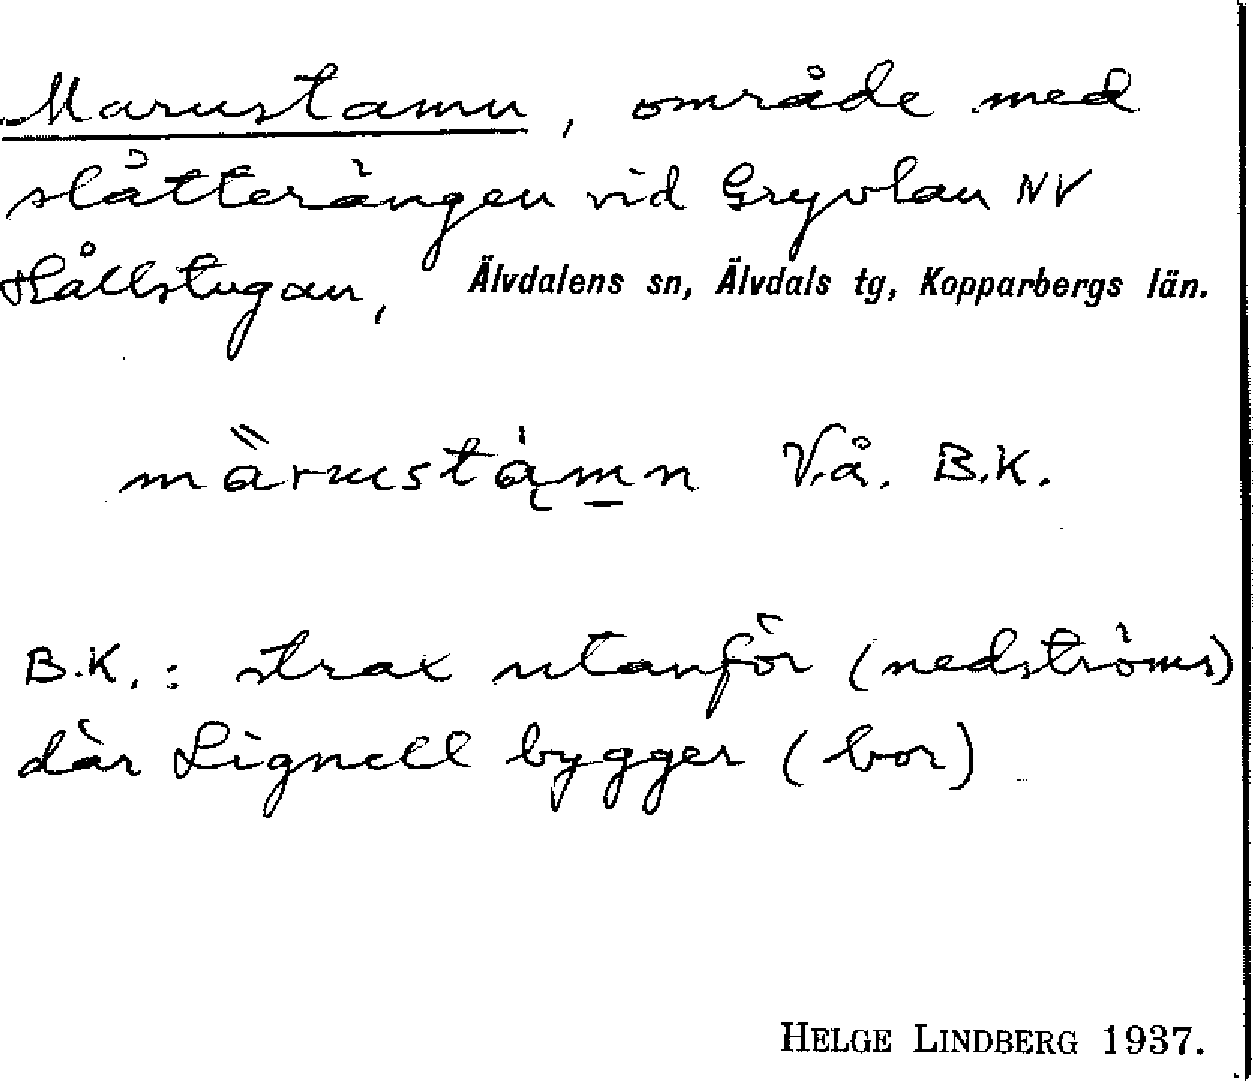 Marustamn, område med
slåtterängen vid Gryvlan NV
Hållstugan, Älvdalens sn, Älvdals tg, Kopparbergs län.
mȁrustą̀m̲n Vå. B.K.
B.K.: strax utanför (nedströms)
där Lignell bygger (bor)
HELGE LINDBERG 1937.